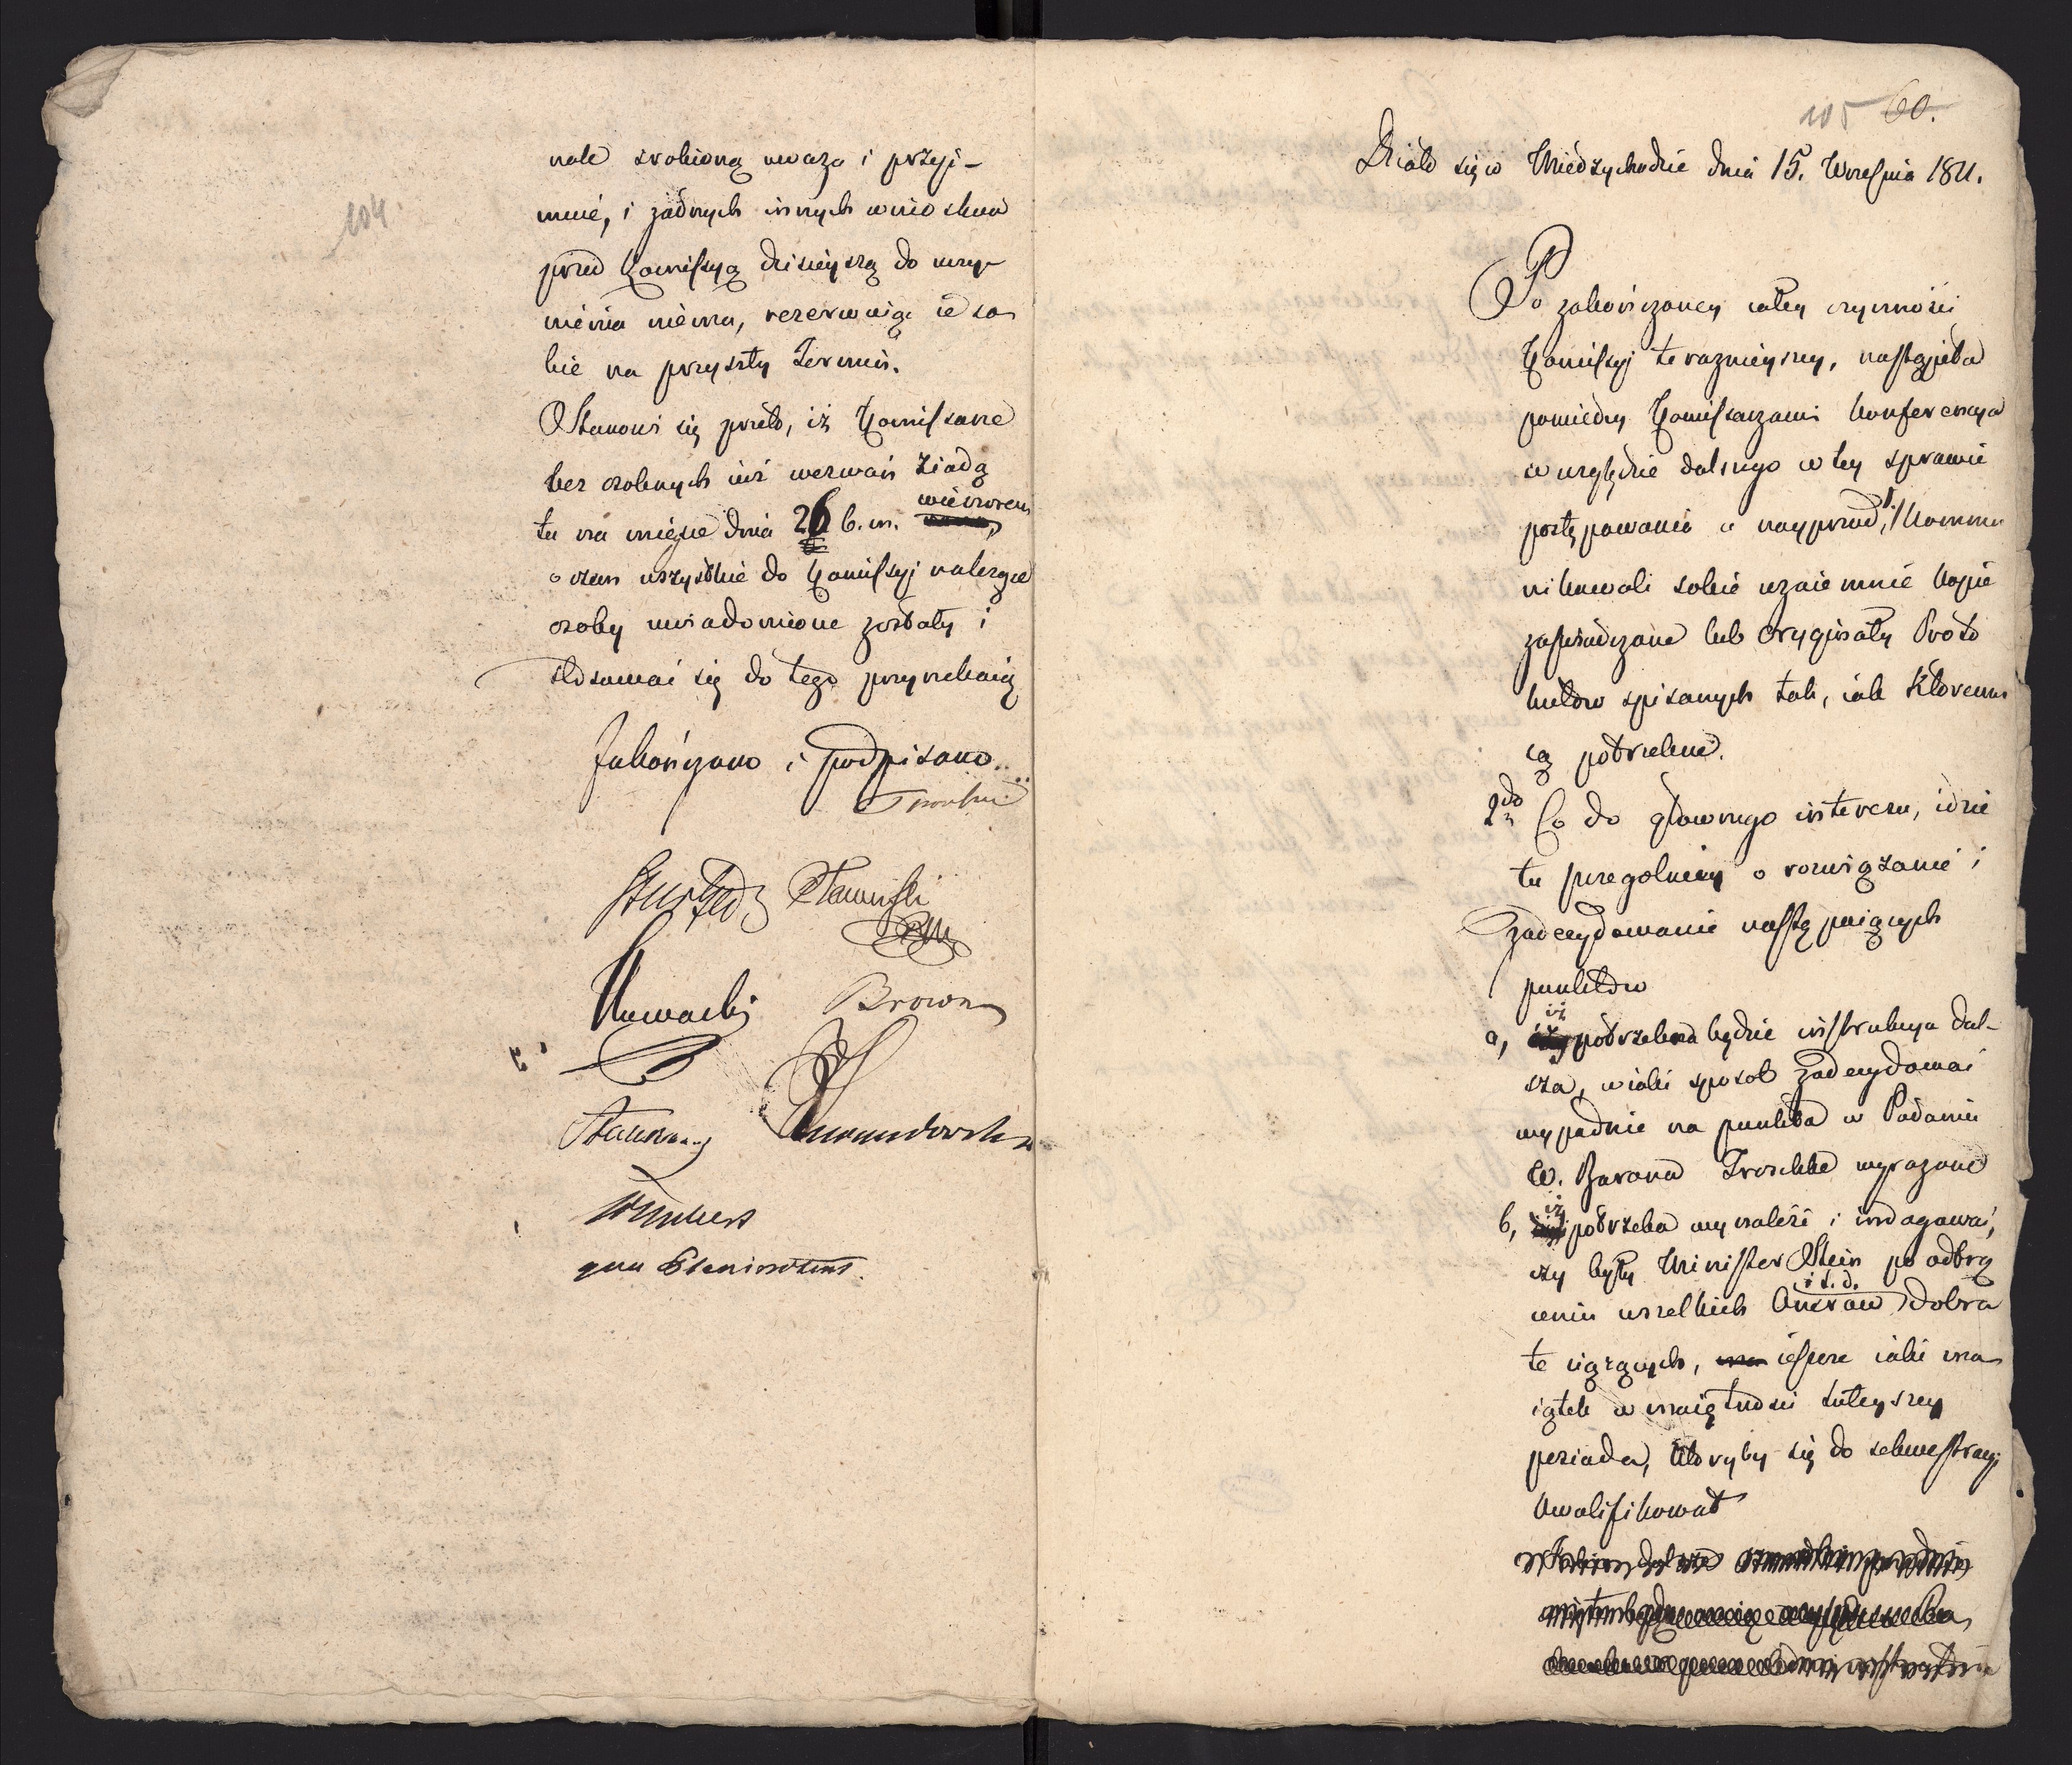 104
nale zrobioną uwazą i przyi-
muie, i żadnych innych wnioskow
przed Kommissyą dzisieyszą do uczy-
nienia niema, rezerwuiąc ie so
bie na przyszły Termin.
Stanowi się przeto, iż Komissarze
bez osobnych iuż wezwań ziadą
wieczorem
tu na mieysce dnia 26 b. m.
o czem wszystkie do Komissyi należące
osoby uwiadomione zostały i
stosować się do tego przyrzekaią
Zakończono i podpisano..
Stawiski
Nawacki Brown
105 60.
Działo się w Miedzychodzie dnia 15. Września 1811.
Po zakończoney całey czynności
Komissyi terazniejszey, nastąpiła
pomiedzy Komissarzami Konferencya
w względzie dalszego w tey sprawie
postępowania a nayprzod, 1. Kommu
nikowali sobie wzaiemnie kopie
zaświadczone lub oryginały Proto
kułow spisanych tak, iak któremu
są potrzebne.
2do Co do głownego interesu, idzie
tu szczegolniey o rozwiązanie i
zadecydowanie następuiących
punktow
iż
a, potrzebna będzie instrukcya dal-
sza, w iaki sposob zadecydować
wypadnie na punkta w Podaniu
W. Barona Troschke wyrażone
iż
b, potrzeba wynaleść i indagować,
czy były Minister Stein po odtrą
i t. d.
ceniu wszelkich Onerow dobra
te ciążących, ieszcze iaki ma
iątek w maiętności tuteyszey
posiada, ktoryby się do sekwestracyi
kwalifikował